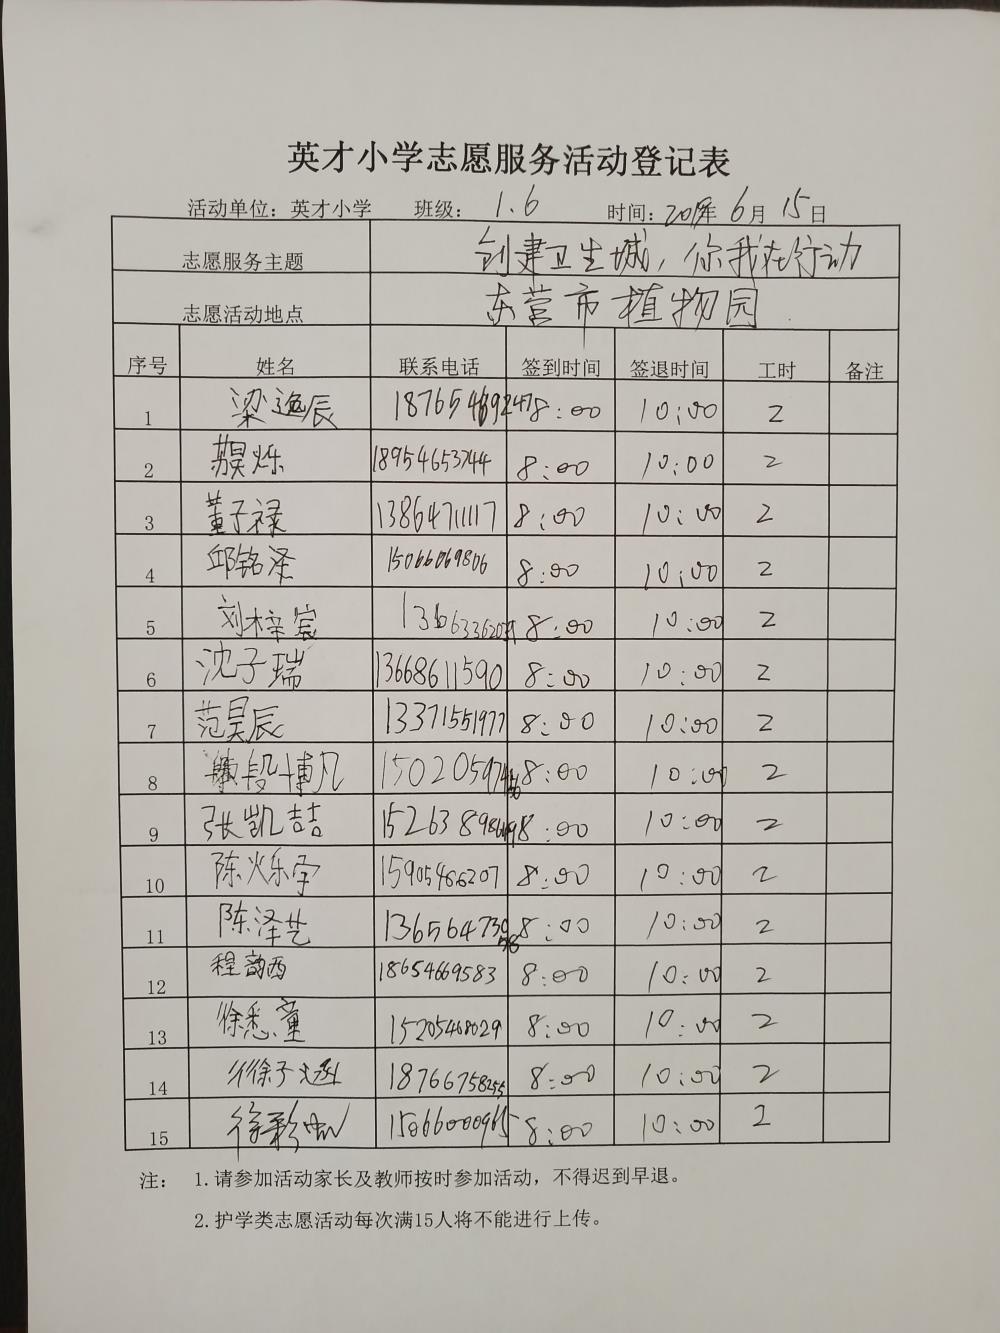 英才小学志愿服务活动登记表
活动单位：英才小学 班级：1.6 时间：年6月15日
志愿服务主题 创建卫生城，你我在行动
志愿活动地点 东营市植物园
序号 姓名 联系电话 签到时间 签退时间 工时 备注
1 梁逸辰 8:00 10:00 2
2 18954653744 8:00 10:00 2
3 董子禄 13864711117 8:00 10:00 2
4 邱铭泽 15066069806 8:00 10:00 2
5 刘梓宸 8:00 10:00 2
6 沈子瑞 13668611590 8:00 10:00 2
7 范昊辰 13371551977 8:00 10:00 2
8 段博凡 8:00 10:00 2
9 张凯喆 8:00 10:00 2
10 陈烁宇 15905486207 8:00 10:00 2
11 陈泽艺 8:00 10:00 2
12 程韵西 18654669583 8:00 10:00 2
13 徐悉童 15205468029 8:00 10:00 2
14 18766758255 8:00 10:00 2
15 8:00 10:00 2
注： 1.请参加活动家长及教师按时参加活动，不得迟到早退。
2.护学类志愿活动每次满15人将不能进行上传。